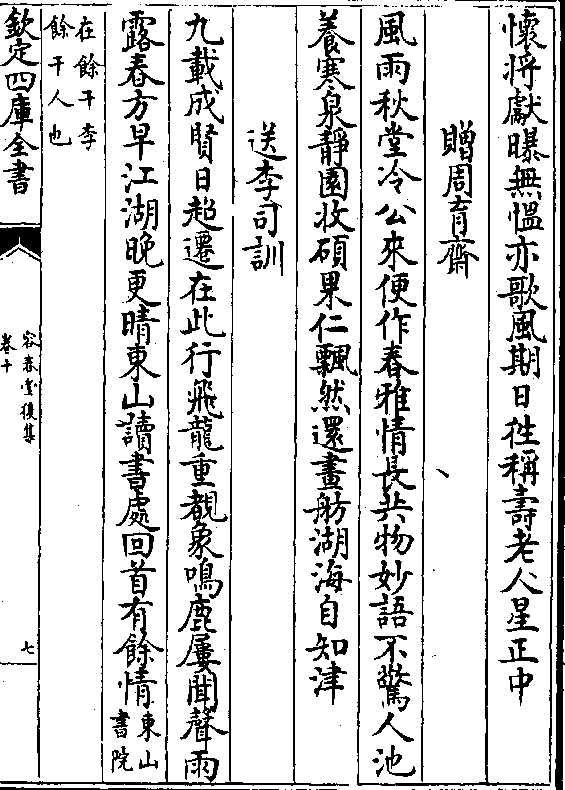 懷將獻曝無愠亦歌風期日徃稱壽老人星正中
贈周育齋
風雨秋堂冷公來便作春雅情長共物妙語不驚人池
養寒泉靜園收碩果仁飄然還畫舫湖海自知津
送李司訓
九載成賢日超遷在此行飛龍重覩象鳴鹿屢聞聲雨
露春方早江湖晚更晴東山讀書處回首有餘情東山
書院
在餘干李
餘干人也
欽定四庫全書
容春堂後集
卷十
七